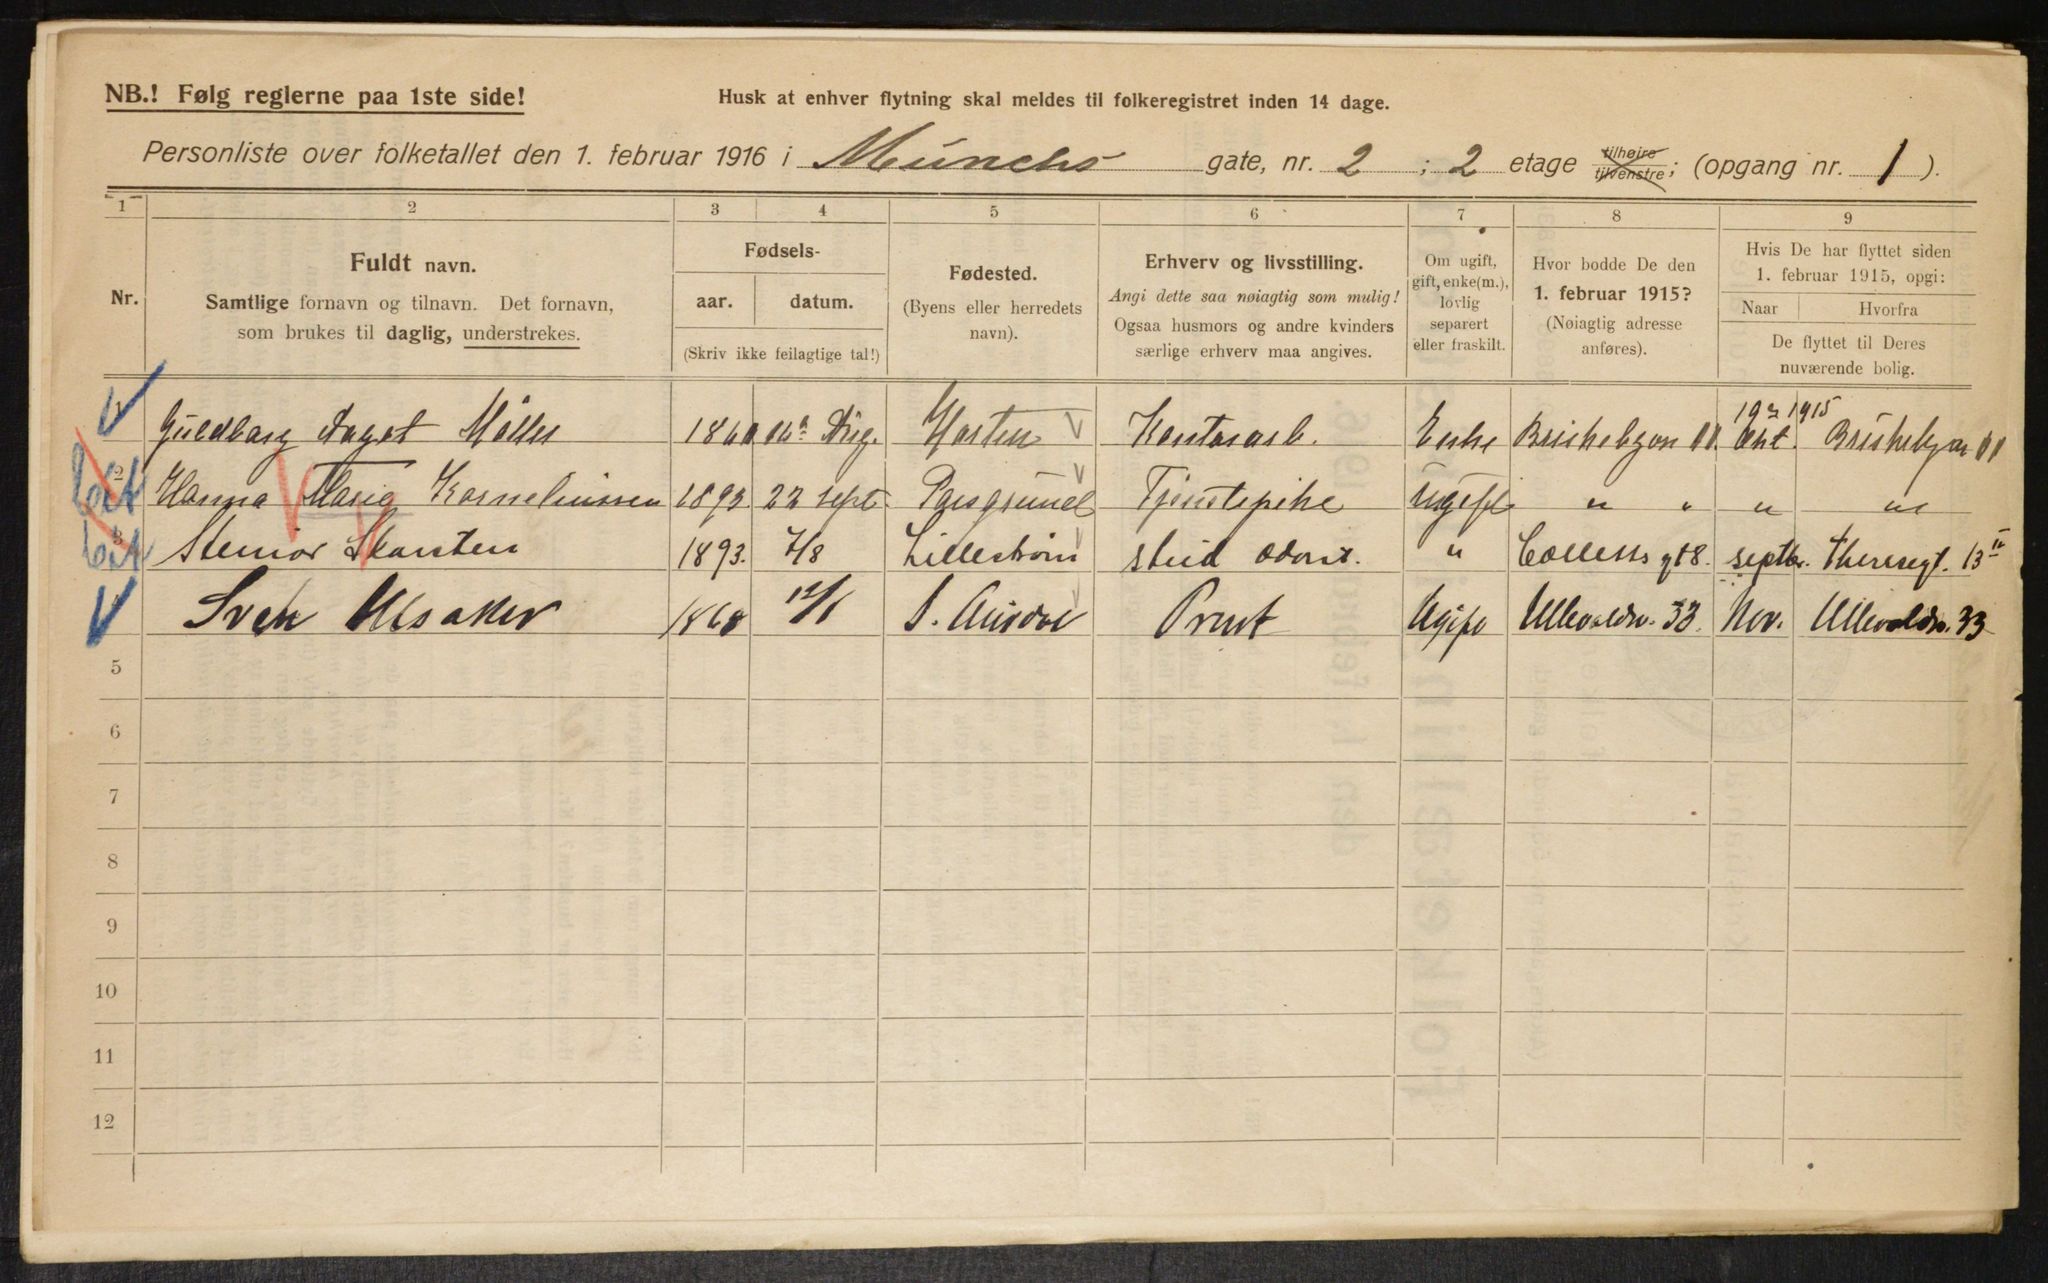 NB.! Følg reglerne paa 1ste side!
Husk at enhver flytning skal meldes til folkeregistret inden 14 dage.
Personliste over folketallet den 1. februar 1916 i Munchs gate, nr. 2 ; 2 etage tilhøire tilvenstre; (opgang nr. 1 ).
1 2 3 4 5 6 7 8 9
Nr.
Fuldt navn.
Samtlige fornavn og tilnavn. Det fornavn,
som brukes til daglig, understrekes.
Fødsels-
aar. datum.
(Skriv ikke feilagtige tal!)
Fødested.
(Byens eller herredets
navn).
Erhverv og livsstilling.
Angi dette saa nøiagtig som mulig!
Ogsaa husmors og andre kvinders
særlige erhverv maa angives.
Om ugift,
gift, enke(m.),
lovlig
separert
eller fraskilt.
Hvor bodde De den
1. februar 1915?
(Nøiagtig adresse
anføres).
Hvis De har flyttet siden
1. februar 1915, opgi:
Naar Hvorfra
De flyttet til Deres
nuværende bolig.
Guldborg Aagot Møller Aug. Horten Kontorarb. Enke Briskebyvn 11. 1915 Okt. Briskebyvn 11
2 Hanna Marie Korneliussen 1893 22 sept. Porsgrund Tjenstepike Ugift " " " "
3 Steinar Skarsten 1893. 7/8 Lillestrøm stud odont. " Colletts gt 8. septbr. Theresegt. 13 IV
Sven Ulsaker 1868 12/1 S. Aurdal Prest Ugift Ullevoldsv. 33. Nov. Ullevoldsv. 33
5
6
7
8
9
10
11
12